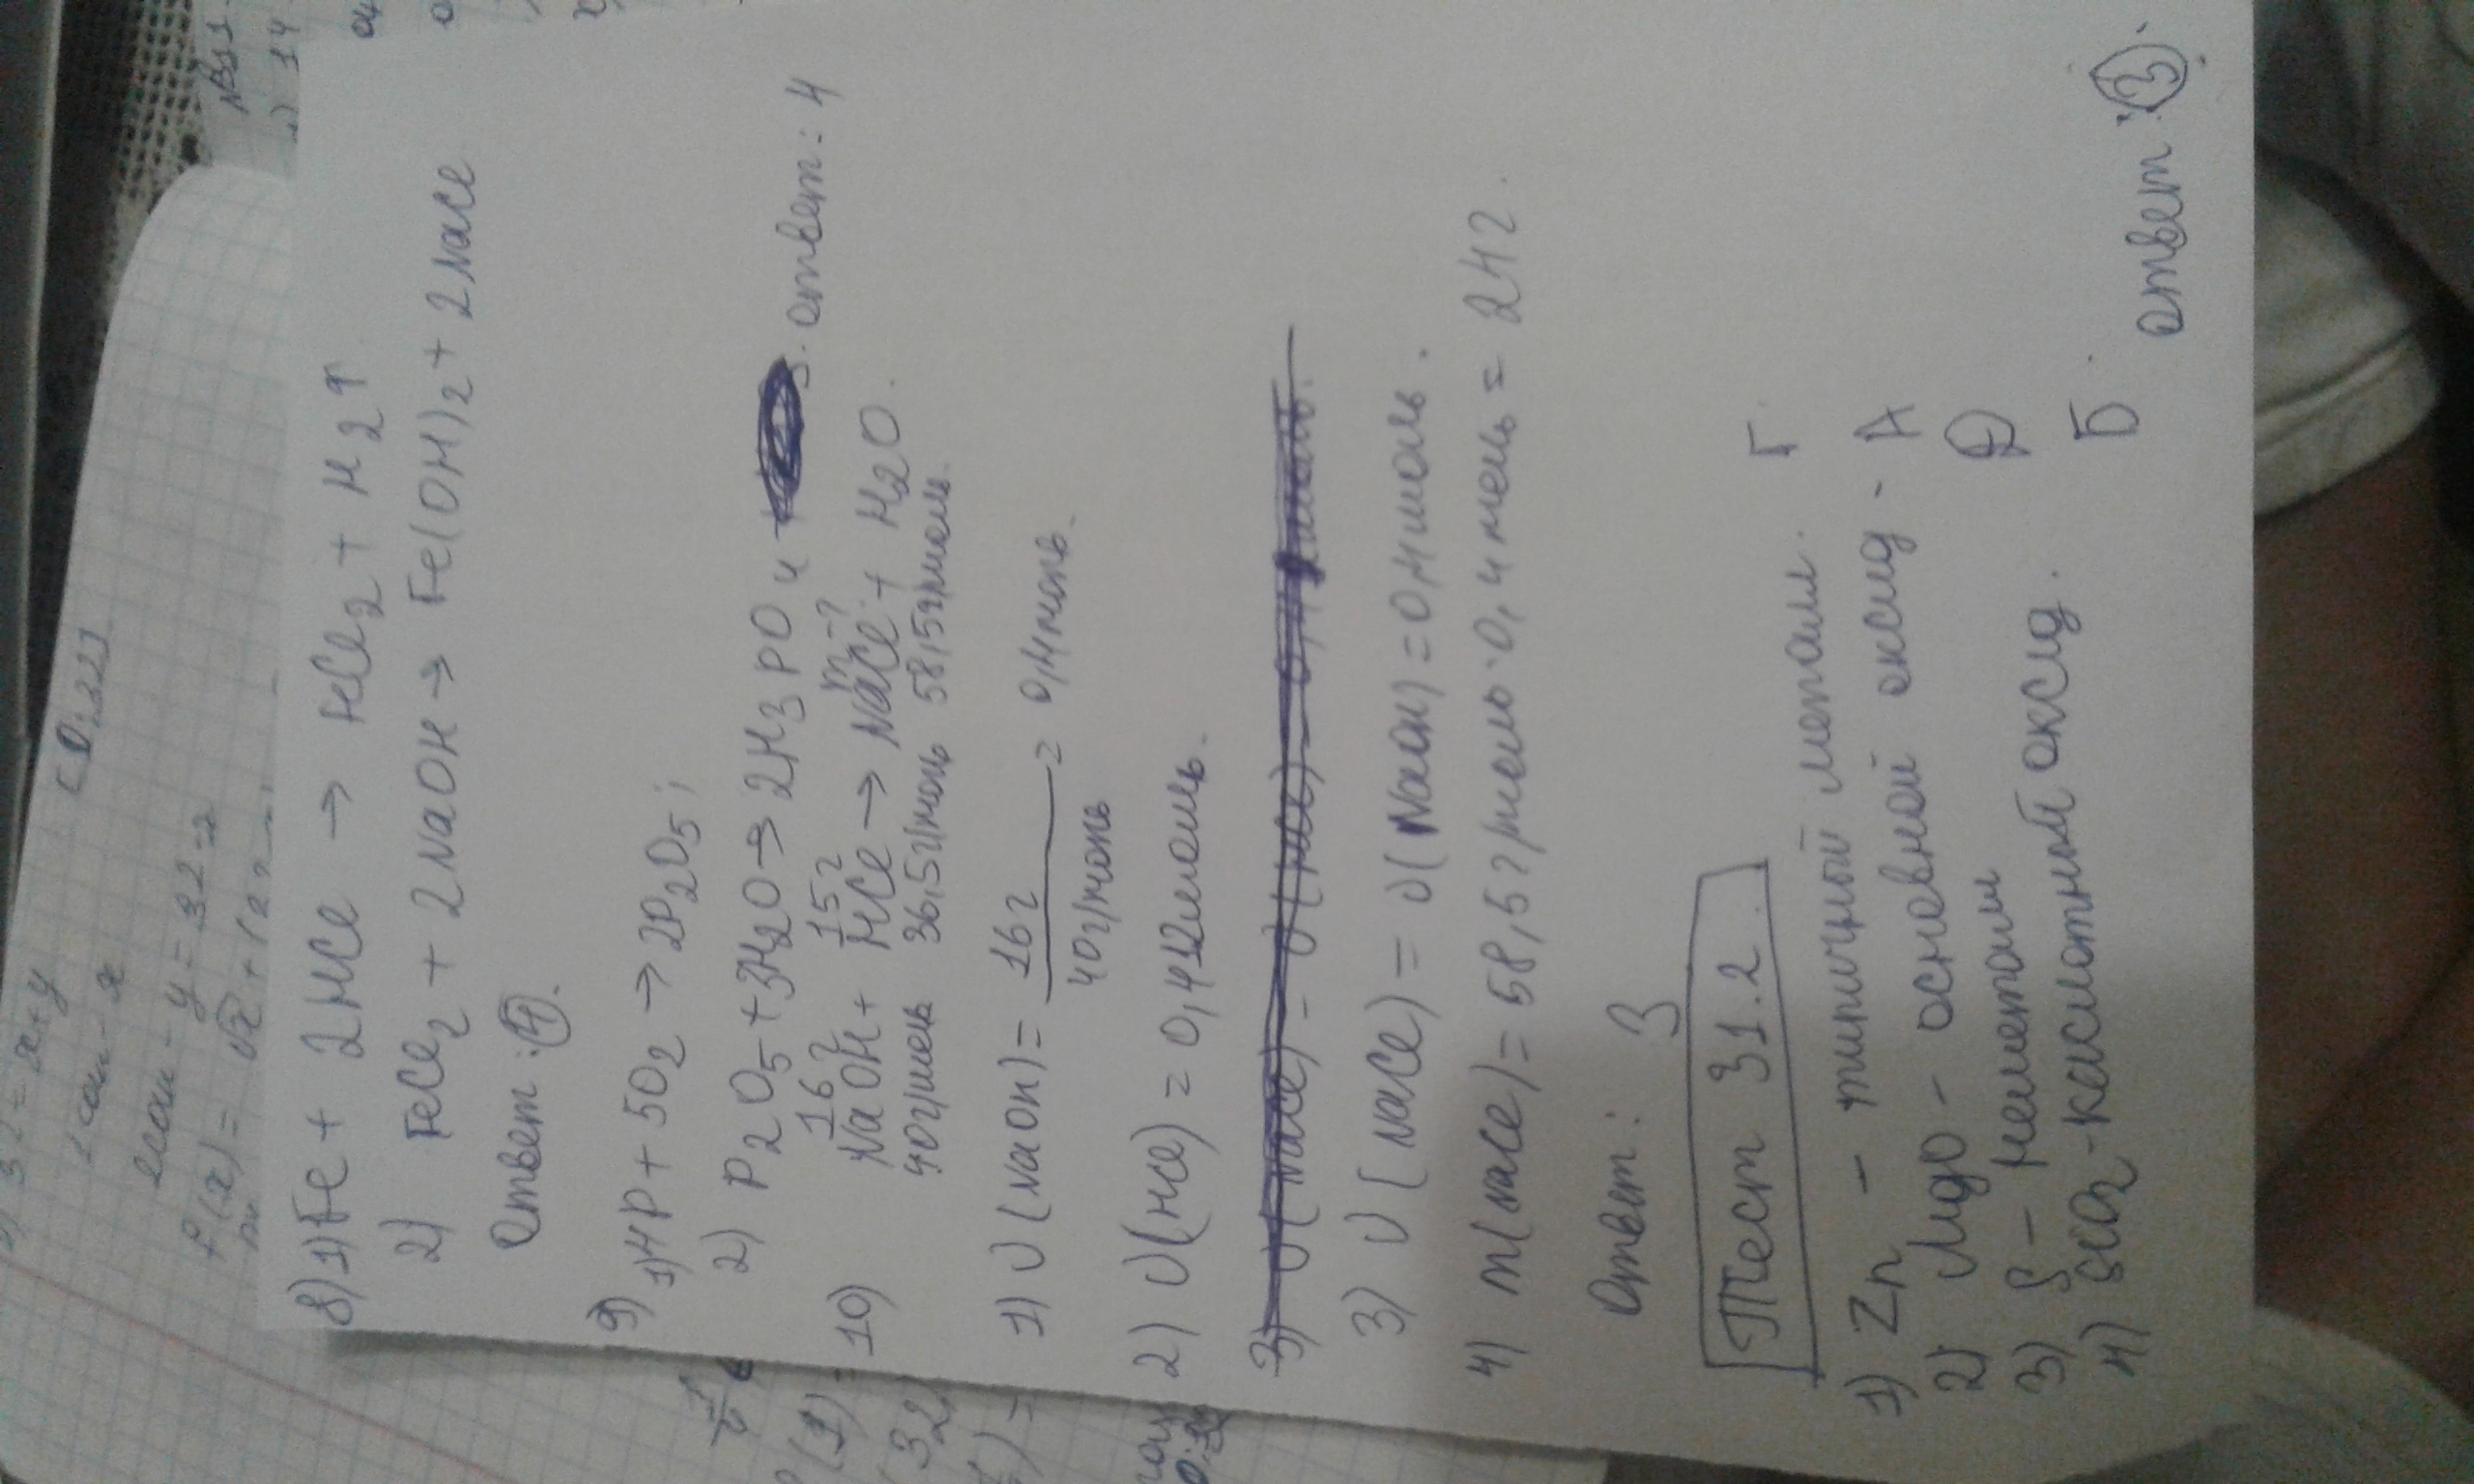 8) 1) Fe + 2HCl → FeCl₂ + H₂↑
2) FeCl₂ + 2NaOH → Fe(OH)₂ + 2NaCl
Ответ: 4.
9) 1) 4P + 5O₂ → 2P₂O₅;
2) P₂O₅ + 3H₂O → 2H₃PO₄ . ответ: 4
16г 15г m-?
10) NaOH + HCl → NaCl + H₂O.
40г/моль 36,5г/моль 58,5г/моль.
1) υ(NaOH) = 16г / 40г/моль = 0,4моль.
2) υ(HCl) = 0,412моль.
3) υ(NaCl) = υ(HCl)
3) υ(NaCl) = υ(NaOH) = 0,4моль.
4) m(NaCl) = 58,5г/моль · 0,4моль = 24г.
Ответ: 3
Тест 31.2.
1) Zn - типичный металл. Г
2) MgO - основной оксид - А
3) S - неметалл Д
4) SiO₂ - кислотный оксид. Б.
ответ: 3.
[0;32]
y = 32-x
f(x) =